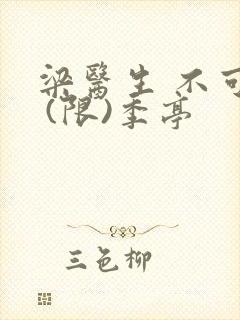 梁醫生 不可
(限)季亭
三色柳